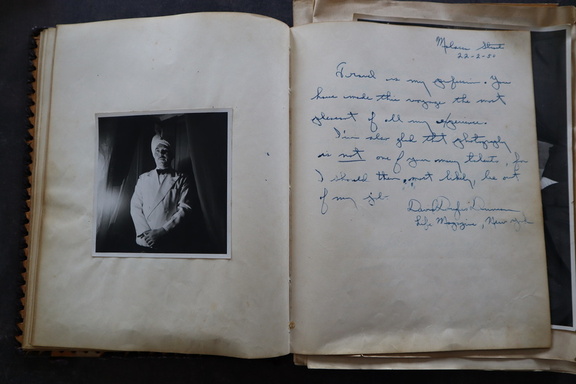 Malacca Strait
22-2-50
Travel is my profession. You
have made this voyage the most
pleasant of all my experiences.
I'm also glad that photography
is not one of your many talents, for
I should then, most likely, be out
of my job.
David Douglas Duncan
Life Magazine, New York